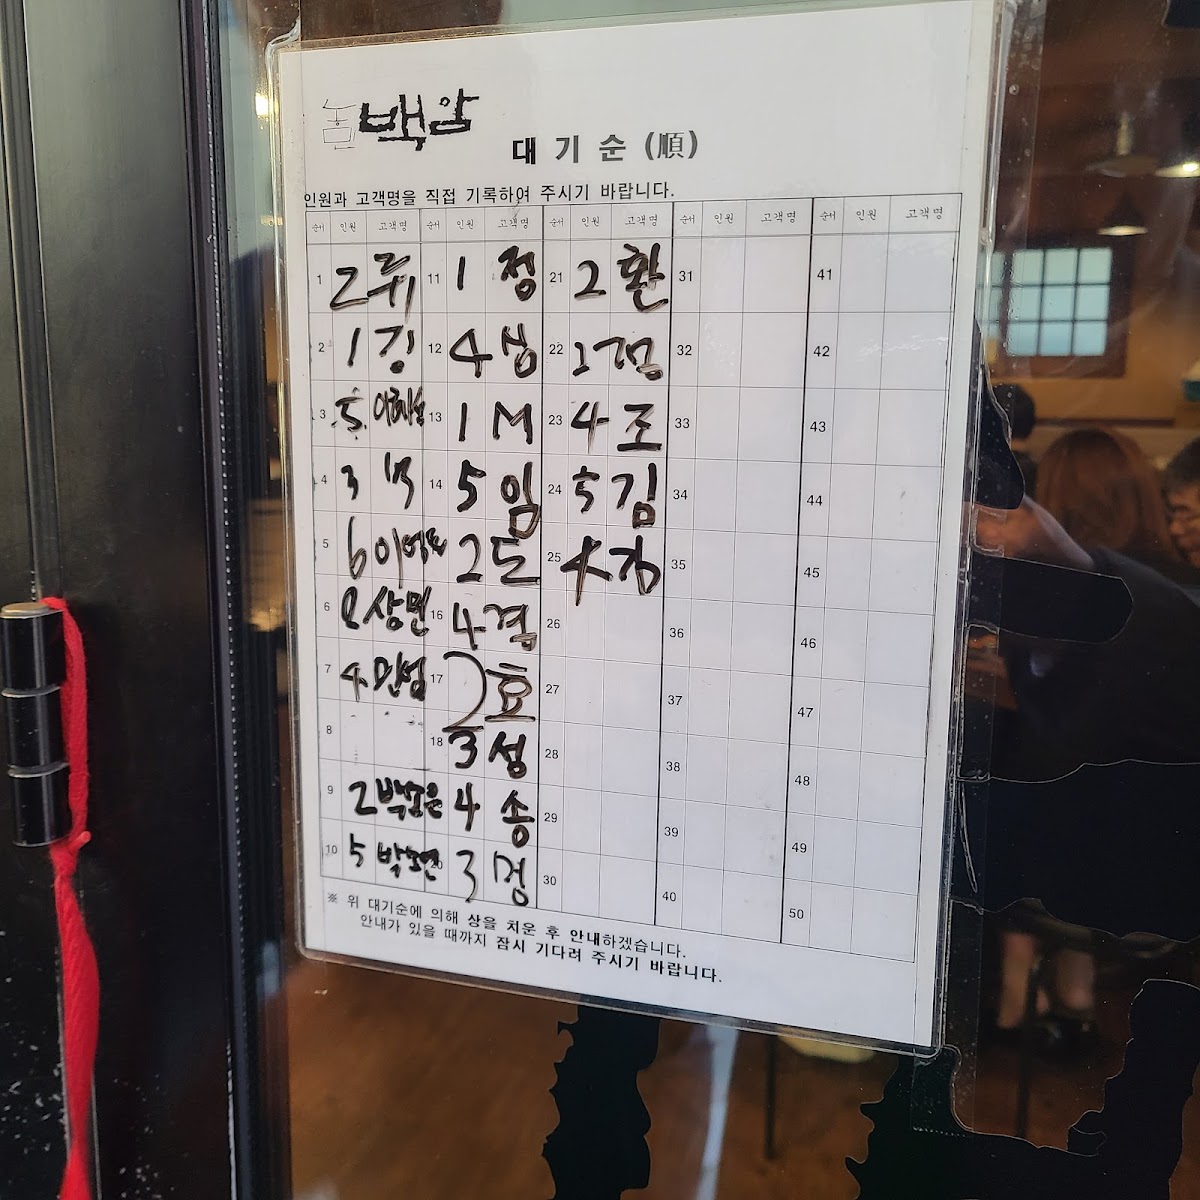 농민백암
대기순(順)
인원과 고객명을 직접 기록하여 주시기 바랍니다.
순서 인원 고객명 순서 인원 고객명 순서 인원 고객명 순서 인원 고객명 순서 인원 고객명
1 2 류 11 1 정 21 2 환 31 41
2 1 강 12 4 22 32 42
3 5 13 1 M 23 4 조 33 43
4 3 14 5 임 24 5 김 34 44
5 6 2 도 25 4 강 35 45
6 2 상민 16 4 겸 26 36 46
7 4 민섭 17 2 효 27 37 47
8 18 3 성 28 38 48
9 2 박소은 4 송 29 39 49
10 5 박소연 3 멍 30 40 50
※ 위 대기순에 의해 상을 치운 후 안내하겠습니다.
안내가 있을 때까지 잠시 기다려 주시기 바랍니다.